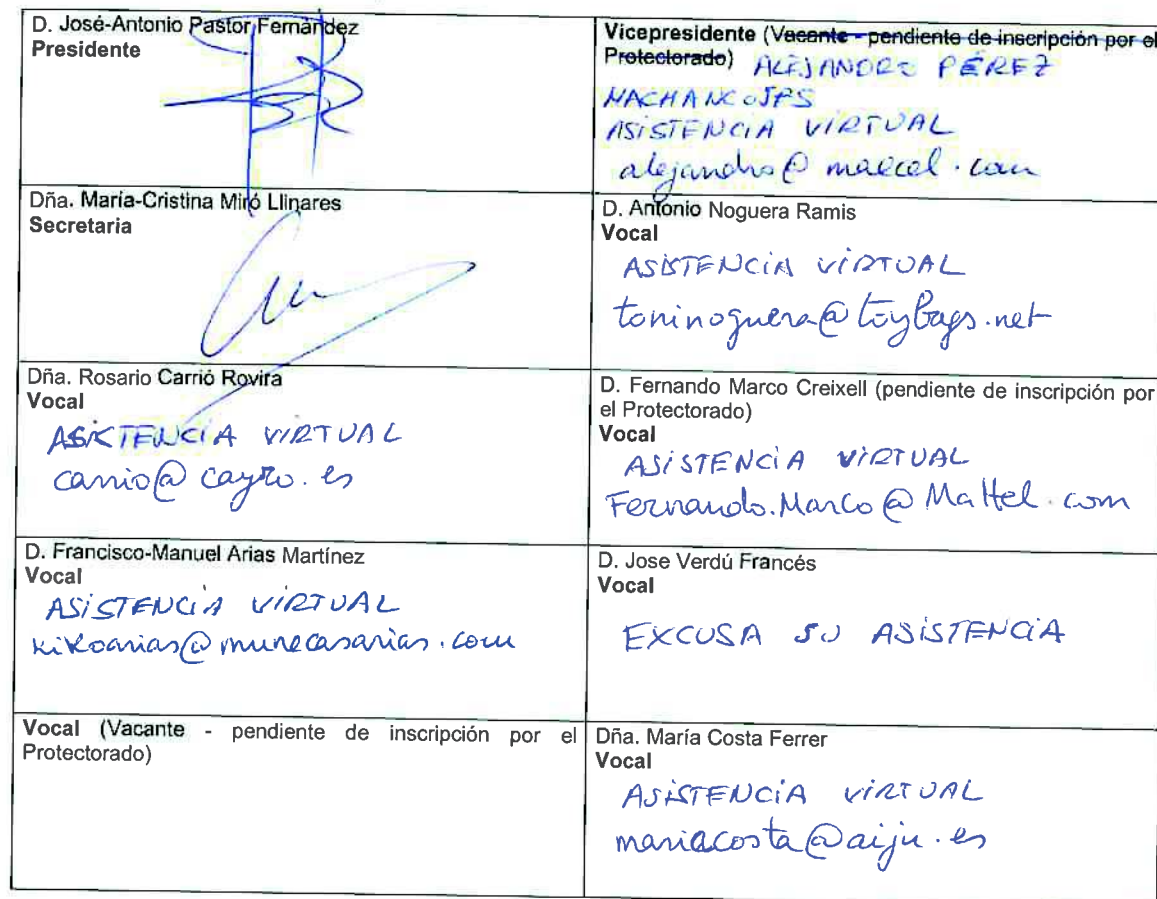 D. José-Antonio Pastor Fernández
Presidente
Vicepresidente (Vacante - pendiente de inscripción por el
Protectorado) ALEJANDRO PÉREZ
ASISTENCIA VIRTUAL
alejandro@marcel.com
Dña. María-Cristina Miró Llinares
Secretaria
D. Antonio Noguera Ramis
Vocal
ASISTENCIA VIRTUAL
toninoguera@toybags.net
Dña. Rosario Carrió Rovira
Vocal
ASISTENCIA VIRTUAL
carrio@cayro.es
D. Fernando Marco Creixell (pendiente de inscripción por
el Protectorado)
Vocal
ASISTENCIA VIRTUAL
Fernando.Marco@Mattel.com
D. Francisco-Manuel Arias Martínez
Vocal
ASISTENCIA VIRTUAL
kikoarias@munecasarias.com
D. Jose Verdú Francés
Vocal
EXCUSA SU ASISTENCIA
Vocal (Vacante - pendiente de inscripción por el
Protectorado)
Dña. María Costa Ferrer
Vocal
ASISTENCIA VIRTUAL
mariacosta@aiju.es